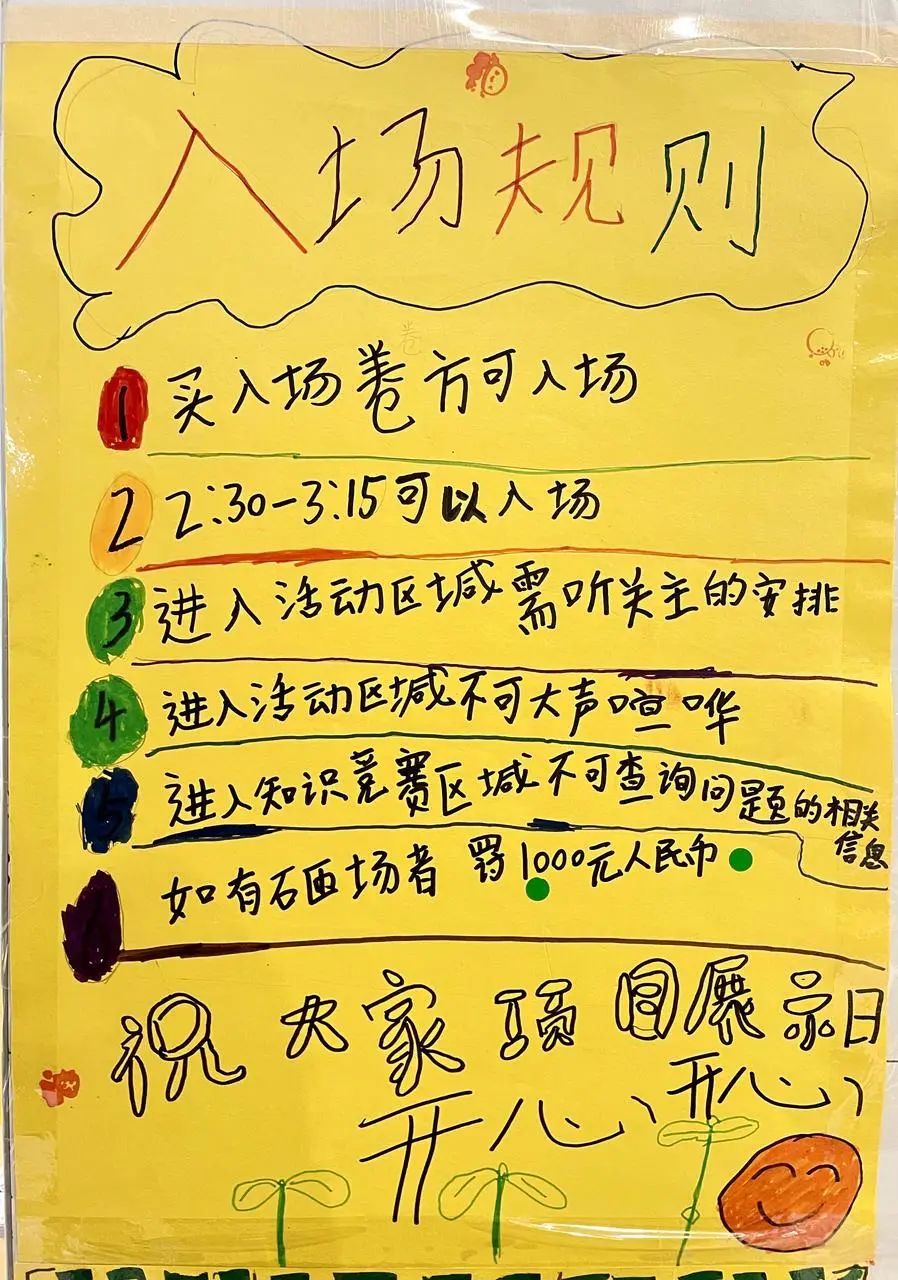 入场规则
1 买入场卷方可入场
2 2:30-3:15可以入场
3 进入活动区域需听关主的安排
4 进入活动区域不可大声喧哗
5 进入知识竞赛区域不可查询问题的相关
信息
6 如有砸场者 罚1000元人民币
祝大家项目展示日
开心、开心、